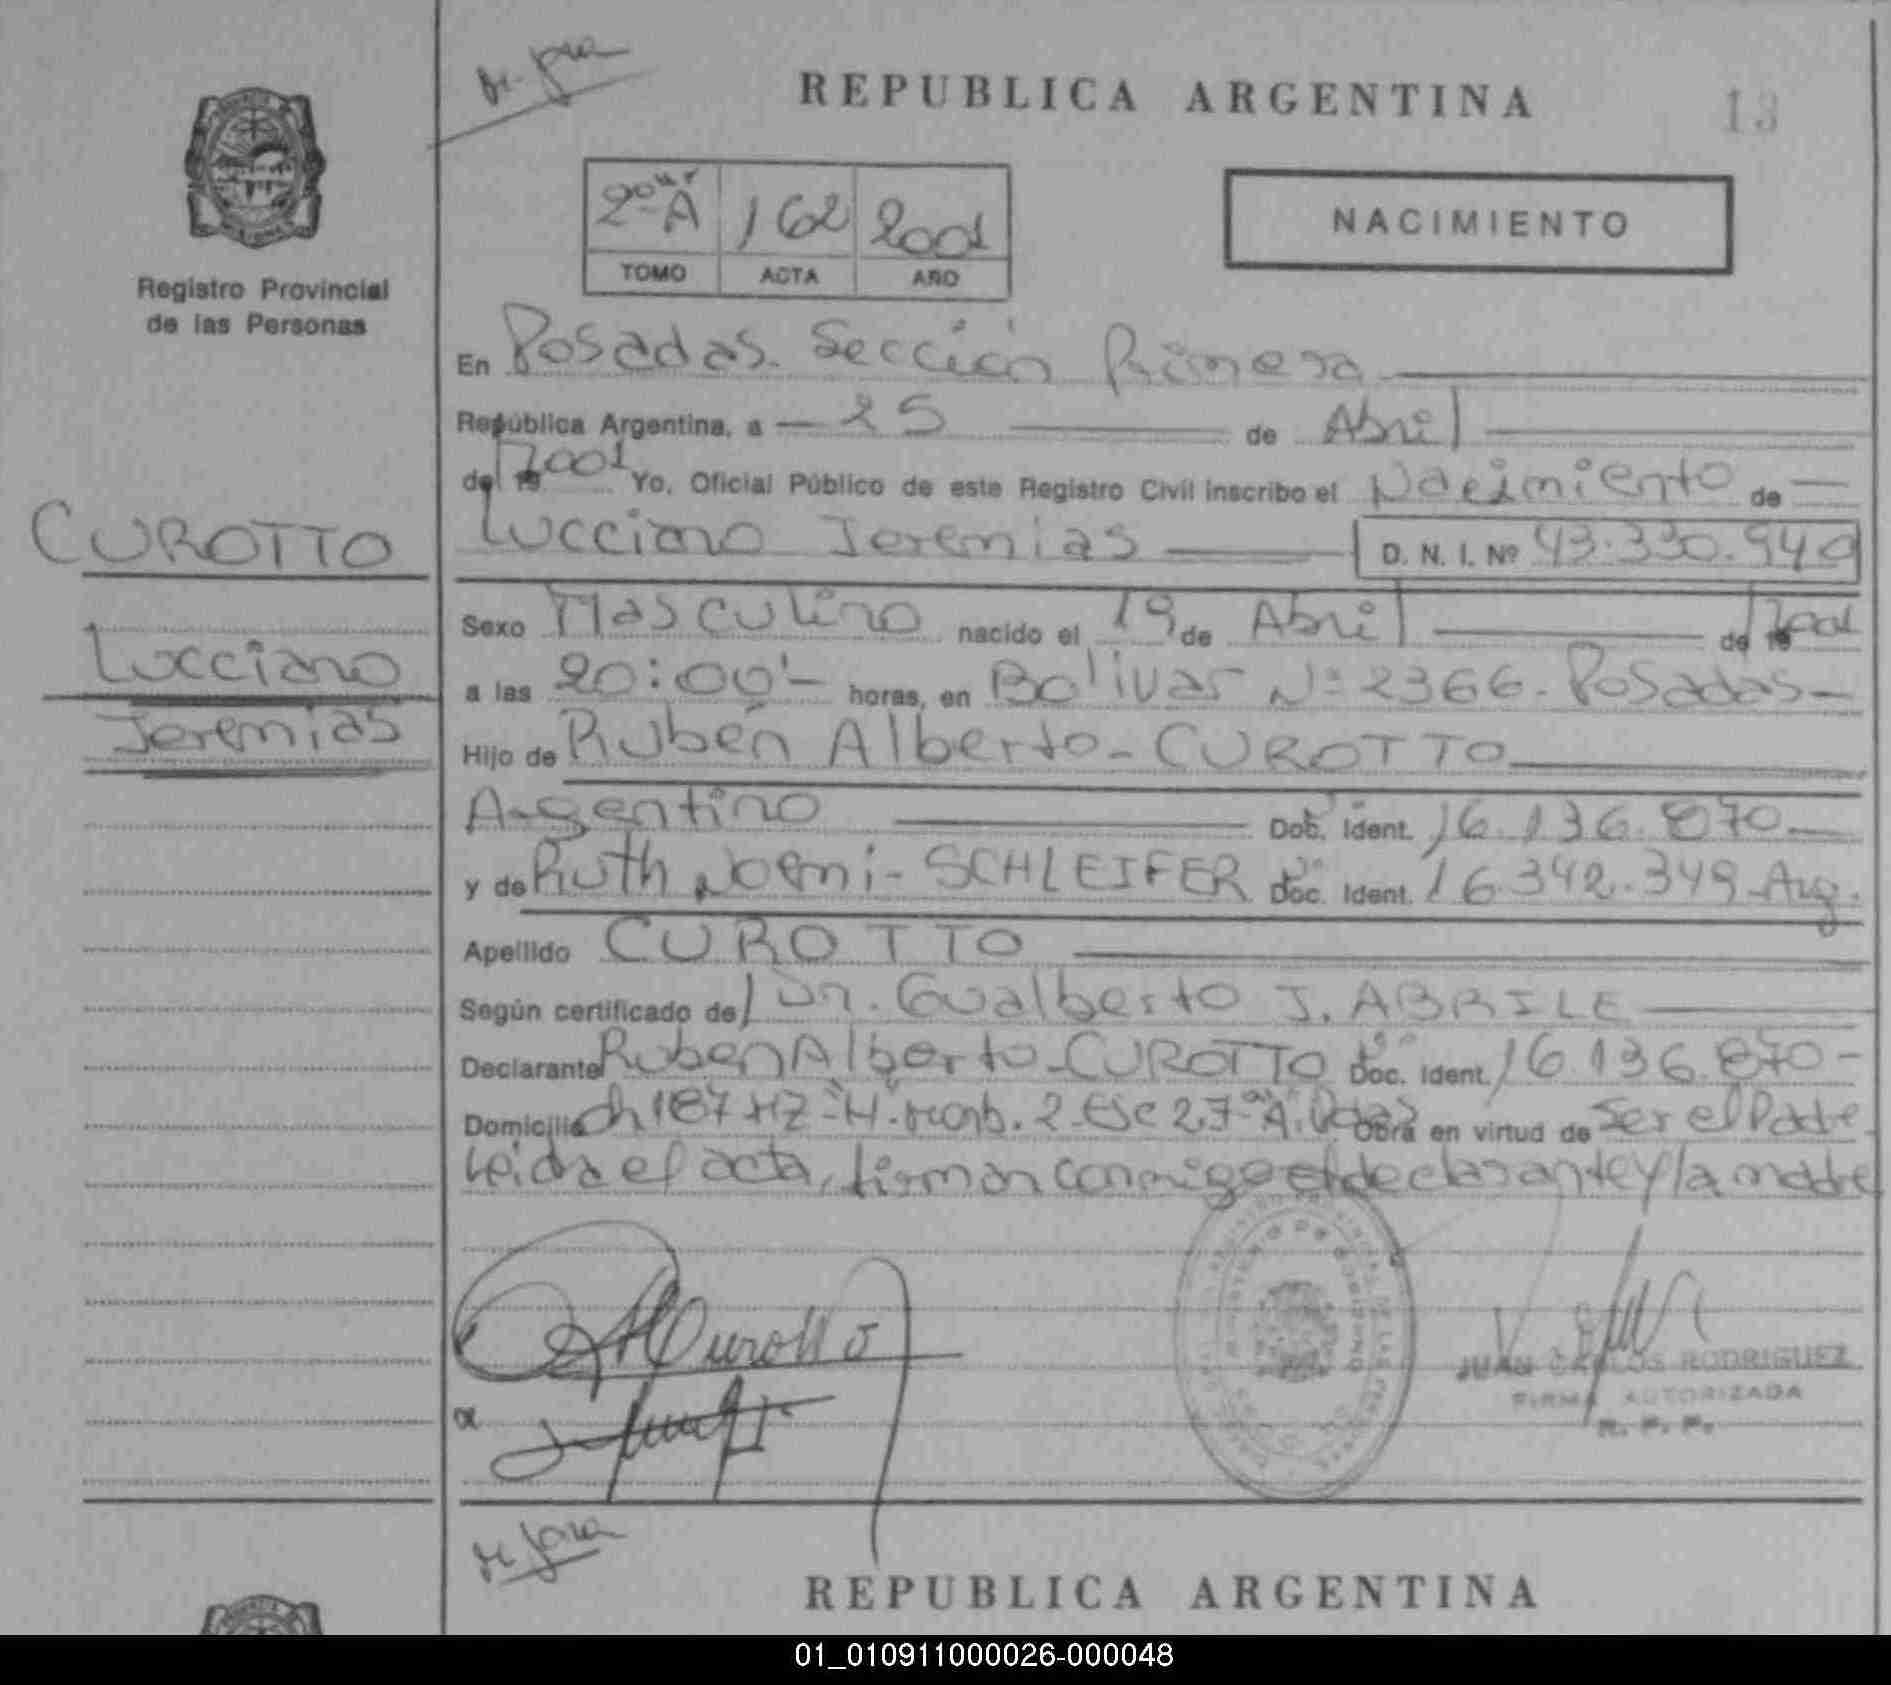 REPUBLICA ARGENTINA
13
2º "A" 162 2001
TOMO ACTA AÑO
NACIMIENTO
Registro Provincial
de las Personas
En Posadas. Sección Primera
República Argentina, a 25 de Abril
del 2001 Yo, Oficial Público de este Registro Civil inscribo el Nacimiento de
Lucciano Jeremias D. N. I. Nº 43.330.940
CUROTTO
Lucciano
Jeremias
Sexo Masculino nacido el 19 de Abril del 2001
a las 20:00'- horas, en Bolivar Nº 2366. Posadas-
Hijo de Rubén Alberto - CUROTTO
Argentino Doc. Ident. 16.136.870
y de Ruth Noemi - SCHLEIFER Doc. Ident. 16.342.349 Arg.
Apellido CUROTTO
Según certificado del Dr. Gualberto J. ABRILE
Declarante Ruben Alberto - CUROTTO Doc. Ident. 16.136.870-
Domicilio Ch 187 MZ "H". monb. 2. Esc 27 "A". Pdas Obra en virtud de Ser el Padre
Leida el acta, firman conmigo el declarante y la madre
JUAN CARLOS RODRIGUEZ
FIRMA AUTORIZADA
R. P. P.
REPUBLICA ARGENTINA
01_010911000026-000048